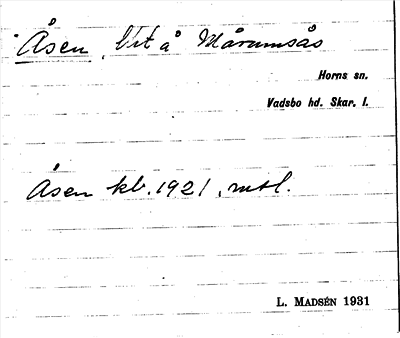 Åsen, Vit å Mårumsås
Horns sn.
Vadsbo hd. Skar. l.
Åsen kb. 1921, mtl.
L. MADSÉN 1931